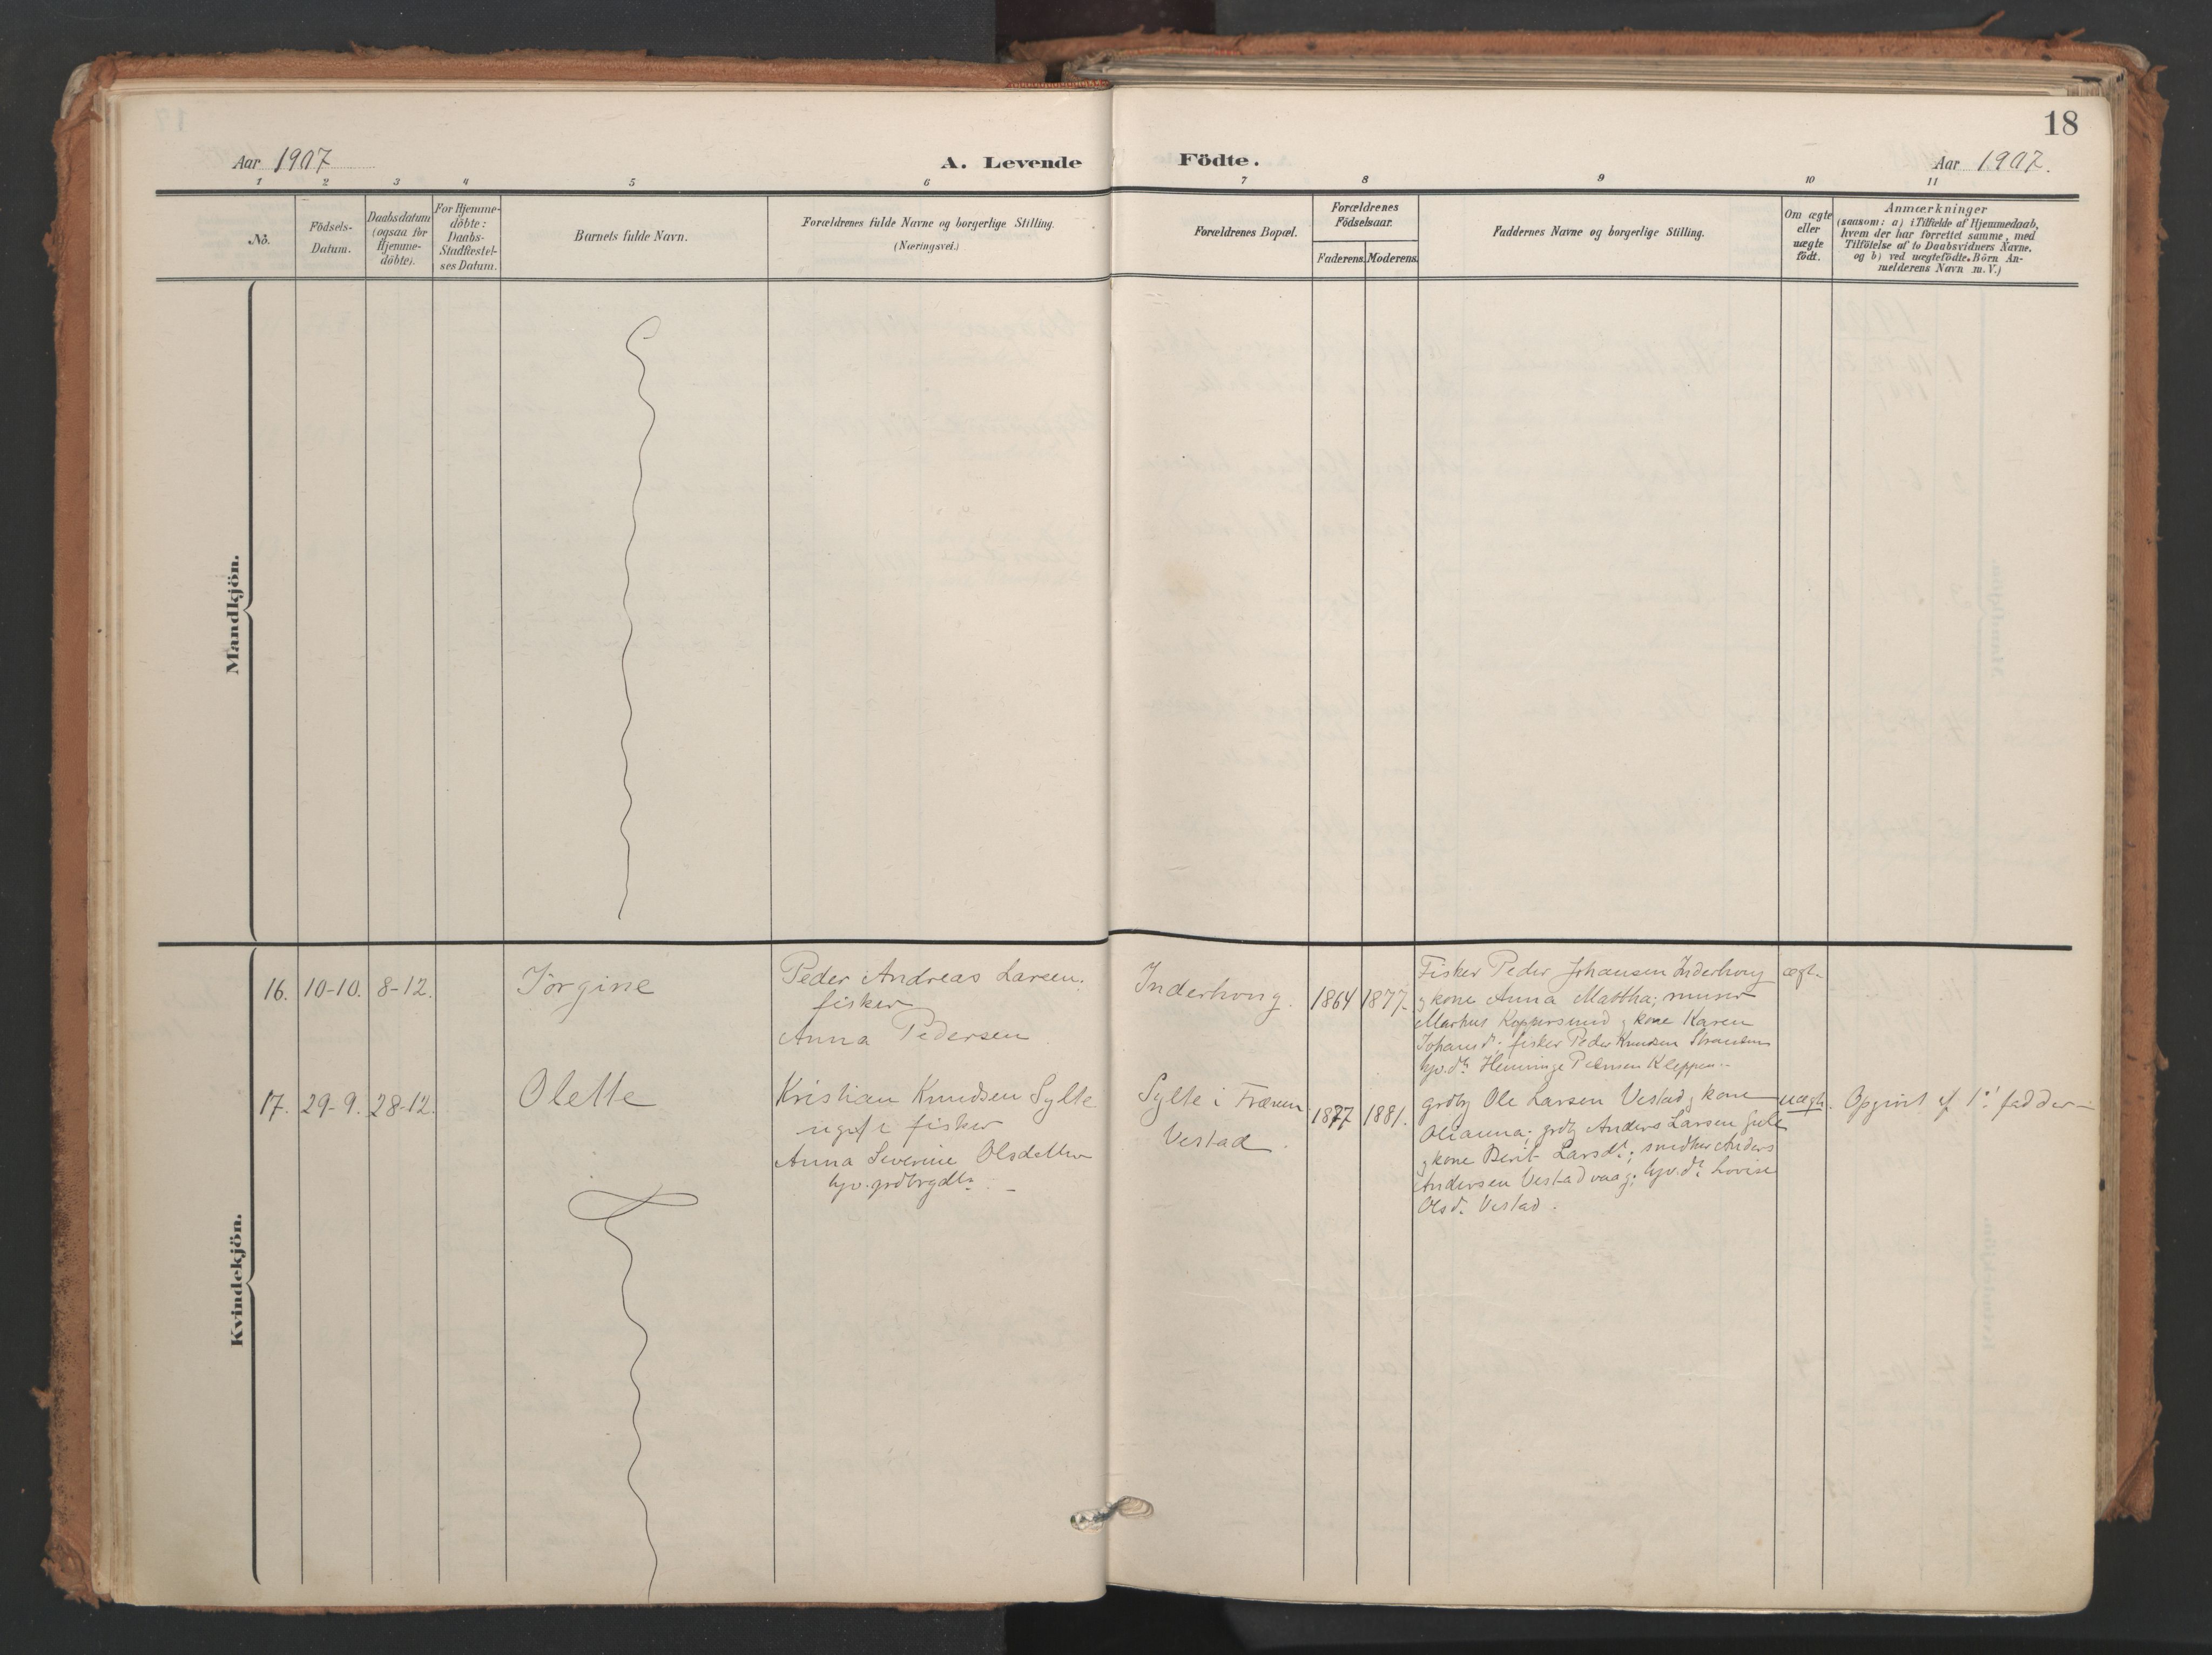 18
Aar 1907
A. Levende Födte.
Aar 1907.
1 2 3 4 5 6 7 8 9 10 11
No.
Födsels-
Datum.
Daabsdatum
(ogsaa for
Hjemme-
döbte).
For Hjemme-
döbte:
Daabs-
Stadfæstel-
ses Datum.
Barnets fulde Navn.
Forældrenes fulde Navne og borgerlige Stilling.
(Næringsvei.)
Forældrenes Bopæl.
Forældrenes
Födselsaar.
Faderens. Moderens.
Faddernes Navne og borgerlige Stilling.
Om ægte
eller
uægte
födt.
Anmærkninger
(saasom: a) i Tilfælde af Hjemmedaab,
hvem der har forrettet samme, med
Tilföielse af to Daabsvidners Navne.
og b) ved uægtefödte Börn An-
melderens Navn m. V.)
Mandkjön.
Kvindekjön.
16. 10-10. 8-12.
Jörgine
Peder Andreas Larsen.
fisker
Anna Pedersen
Inderhoug.
1864 1877.
Fisker Peder Johansen Inderhoug
g kone Anna Mattha; murer
Markus Koppersund g kone Karen
Johansd.; fisker Peder Knudsen
hv. dtr Henninge Pedersen Kleppen.
ægt.
17. 29-9. 28-12.
Olette
Kristian Knudsen Sylte
ugift fisker
Anna Severine Olsdatter
Sylte i Frænen
Vestad.
1877 1881.
grdbr Ole Larsen Vestad g kone
Olianna; grdbr Anders Larsen Gule
g kone Berit Larsdtr; snedker Anders
Andersen Vestadvaag; hv. dtr Lovise
Olsd. Vestad.
uægt.
Opgivet af 1ste fadder